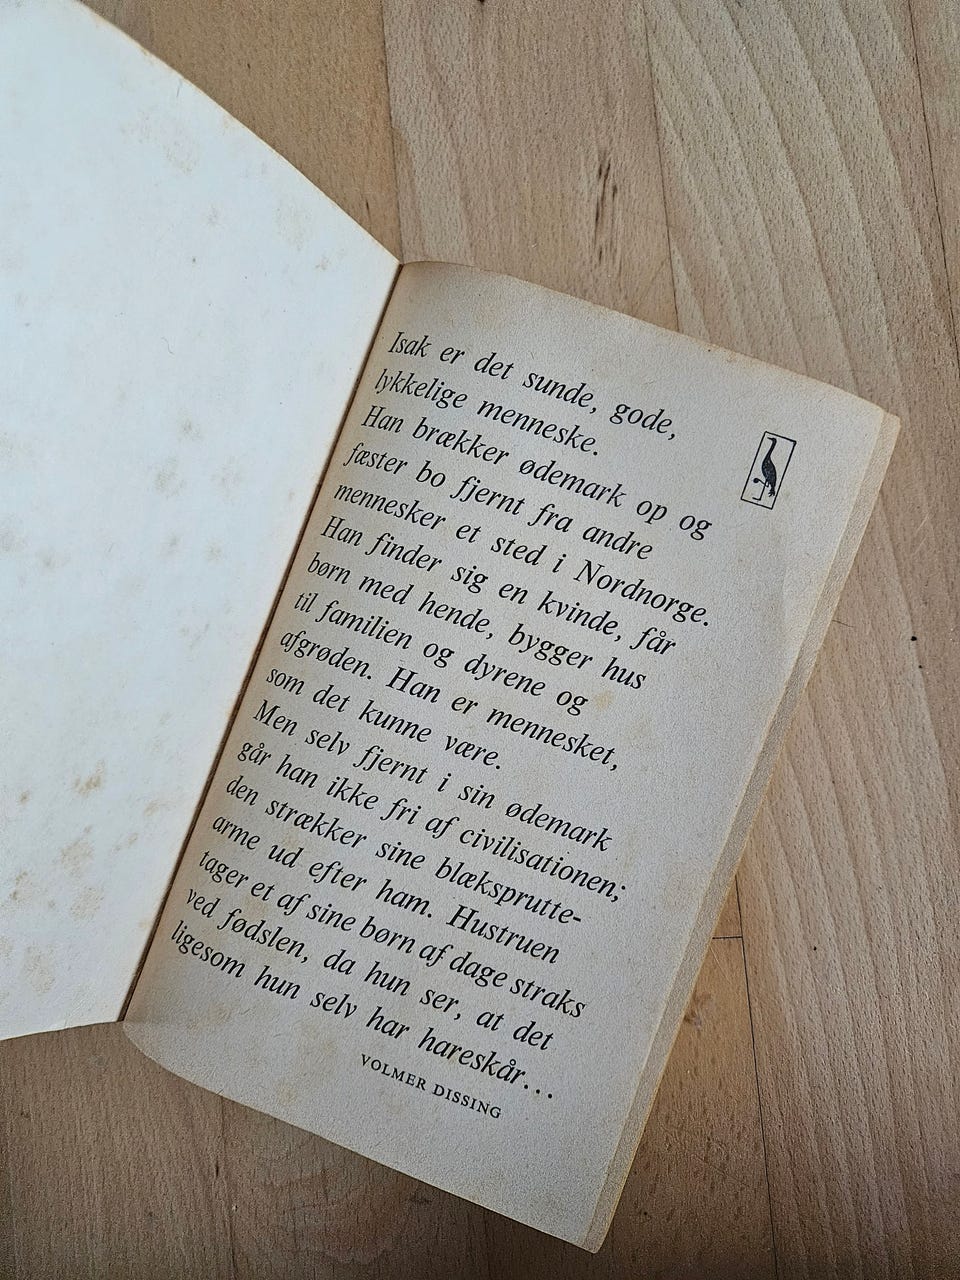 Isak er det sunde, gode,
lykkelige menneske.
Han brækker ødemark op og
fæster bo fjernt fra andre
mennesker et sted i Nordnorge.
Han finder sig en kvinde, får
børn med hende, bygger hus
til familien og dyrene og
afgrøden. Han er mennesket,
som det kunne være.
Men selv fjernt i sin ødemark
går han ikke fri af civilisationen;
den strækker sine blæksprutte-
arme ud efter ham. Hustruen
tager et af sine børn af dage straks
ved fødslen, da hun ser, at det
ligesom hun selv har hareskår...
VOLMER DISSING